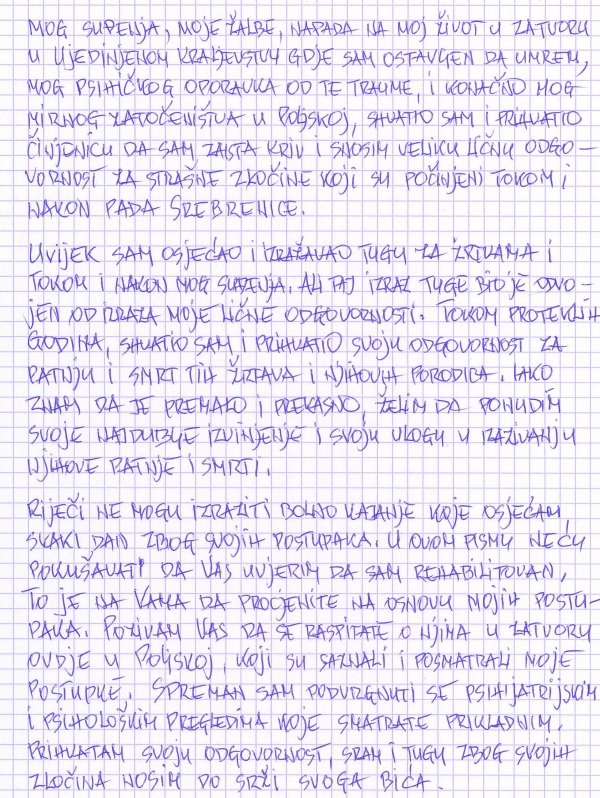 MOG SUĐENJA, MOJE ŽALBE, NAPADA NA MOJ ŽIVOT U ZATVORU
U UJEDINJENOM KRALJEVSTVU GDJE SAM OSTAVLJEN DA UMREM,
MOG PSIHIČKOG OPORAVKA OD TE TRAUME, I KONAČNO MOG
MIRNOG ZATOČENIŠTVA U POLJSKOJ, SHVATIO SAM I PRIHVATIO
ČINJENICU DA SAM ZAISTA KRIV I SNOSIM VELIKU LIČNU ODGO-
VORNOST ZA STRAŠNE ZLOČINE KOJI SU POČINJENI TOKOM I
NAKON PADA SREBRENICE.
UVIJEK SAM OSJEĆAO I IZRAŽAVAO TUGU ZA ŽRTVAMA I
TOKOM I NAKON MOG SUĐENJA. ALI TAJ IZRAZ TUGE BIO JE ODVO-
JEN OD IZRAZA MOJE LIČNE ODGOVORNOSTI. TOKOM PROTEKLIH
GODINA, SHVATIO SAM I PRIHVATIO SVOJU ODGOVORNOST ZA
PATNJU I SMRT TIH ŽRTAVA I NJIHOVIH PORODICA. IAKO
ZNAM DA JE PREMALO I PREKASNO, ŽELIM DA PONUDIM
SVOJE NAJDUBLJE IZVINJENJE I SVOJU ULOGU U IZAZIVANJU
NJIHOVE PATNJE I SMRTI.
RIJEČI NE MOGU IZRAZITI BOLNO KAJANJE KOJE OSJEĆAM
SVAKI DAN ZBOG SVOJIH POSTUPAKA. U OVOM PISMU NEĆU
POKUŠAVATI DA VAS UVJERIM DA SAM REHABILITOVAN,
TO JE NA VAMA DA PROCJENITE NA OSNOVU MOJIH POSTU-
PAKA. POZIVAM VAS DA SE RASPITATE O NJIMA U ZATVORU
OVDJE U POLJSKOJ, KOJI SU SAZNALI I POSMATRALI MOJE
POSTUPKE. SPREMAN SAM PODVRGNUTI SE PSIHIJATRIJSKIM
I PSIHOLOŠKIM PREGLEDIMA KOJE SMATRATE PRIKLADNIM.
PRIHVATAM SVOJU ODGOVORNOST, SRAM I TUGU ZBOG SVOJIH
ZLOČINA NOSIM DO SRŽI SVOGA BIĆA.